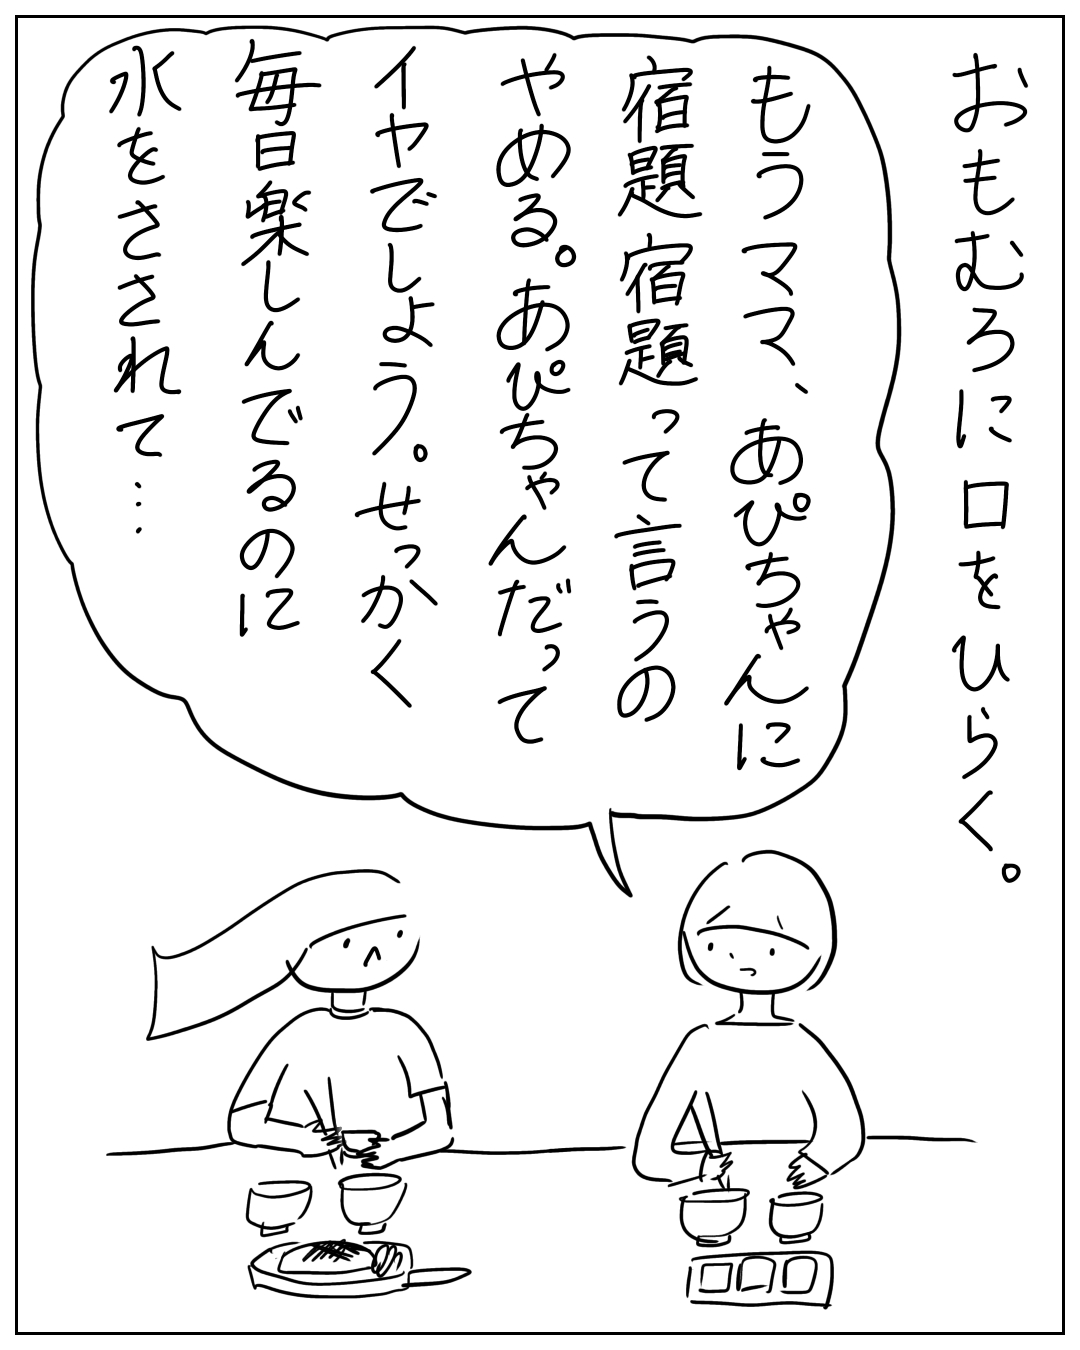 おもむろに口をひらく。
もうママ、あぴちゃんに
宿題宿題って言うの
やめる。あぴちゃんだって
イヤでしょう。せっかく
毎日楽しんでるのに
水をさされて…